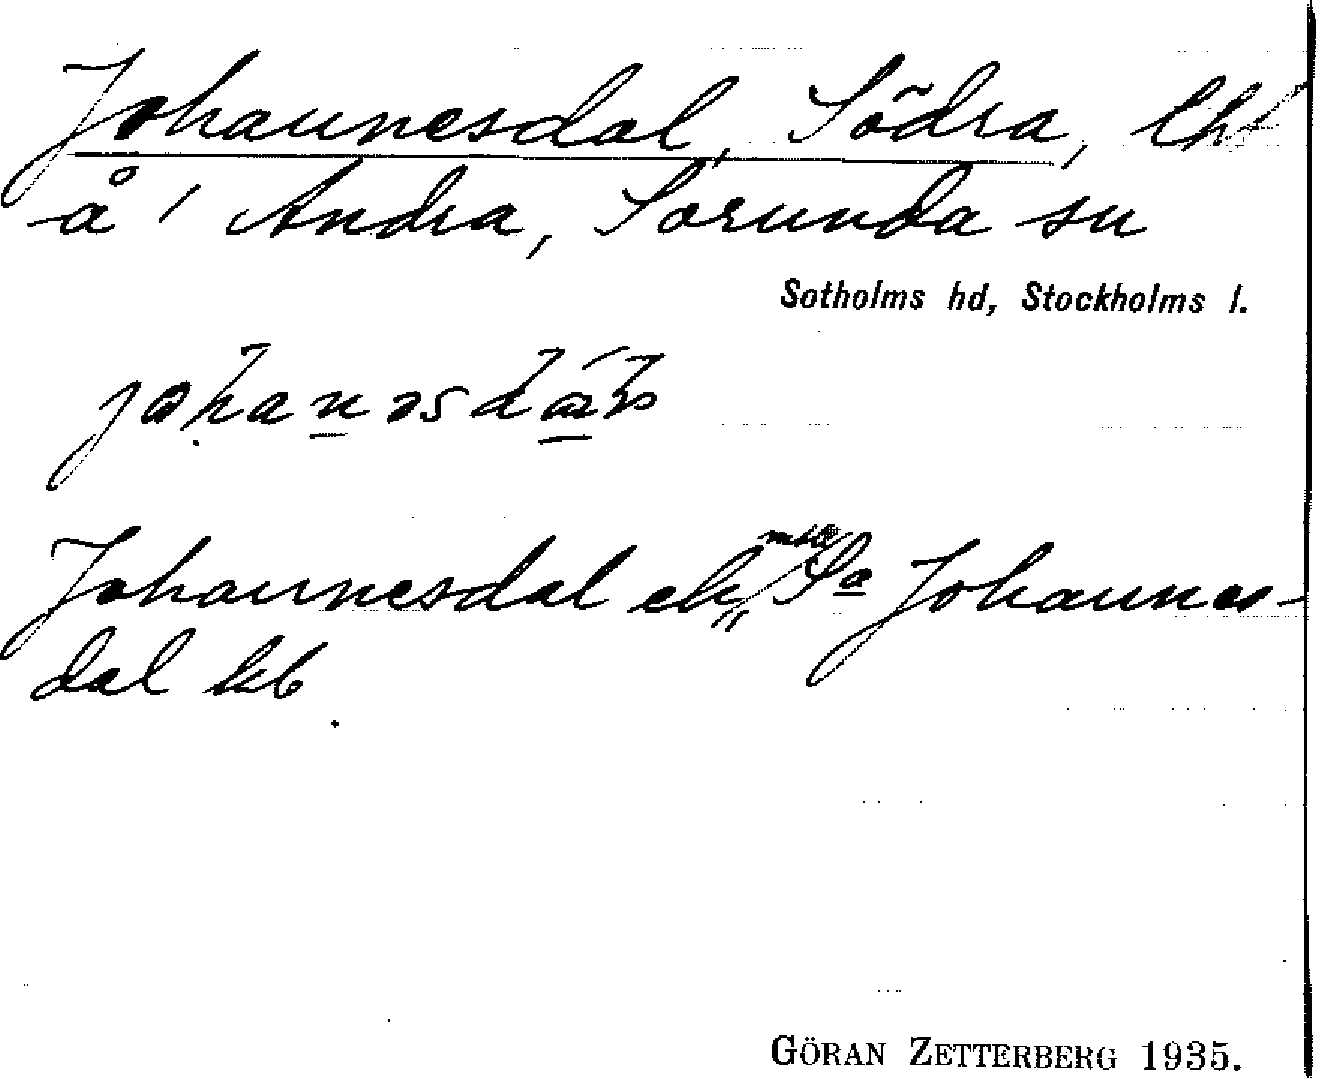 Johannesdal, Södra, lht
å 1 Andra, Sorunda sn
Sotholms hd, Stockholms l.
Johannesdal ek, Sa Johannes-
dal kb
GÖRAN ZETTERBERG 1935.